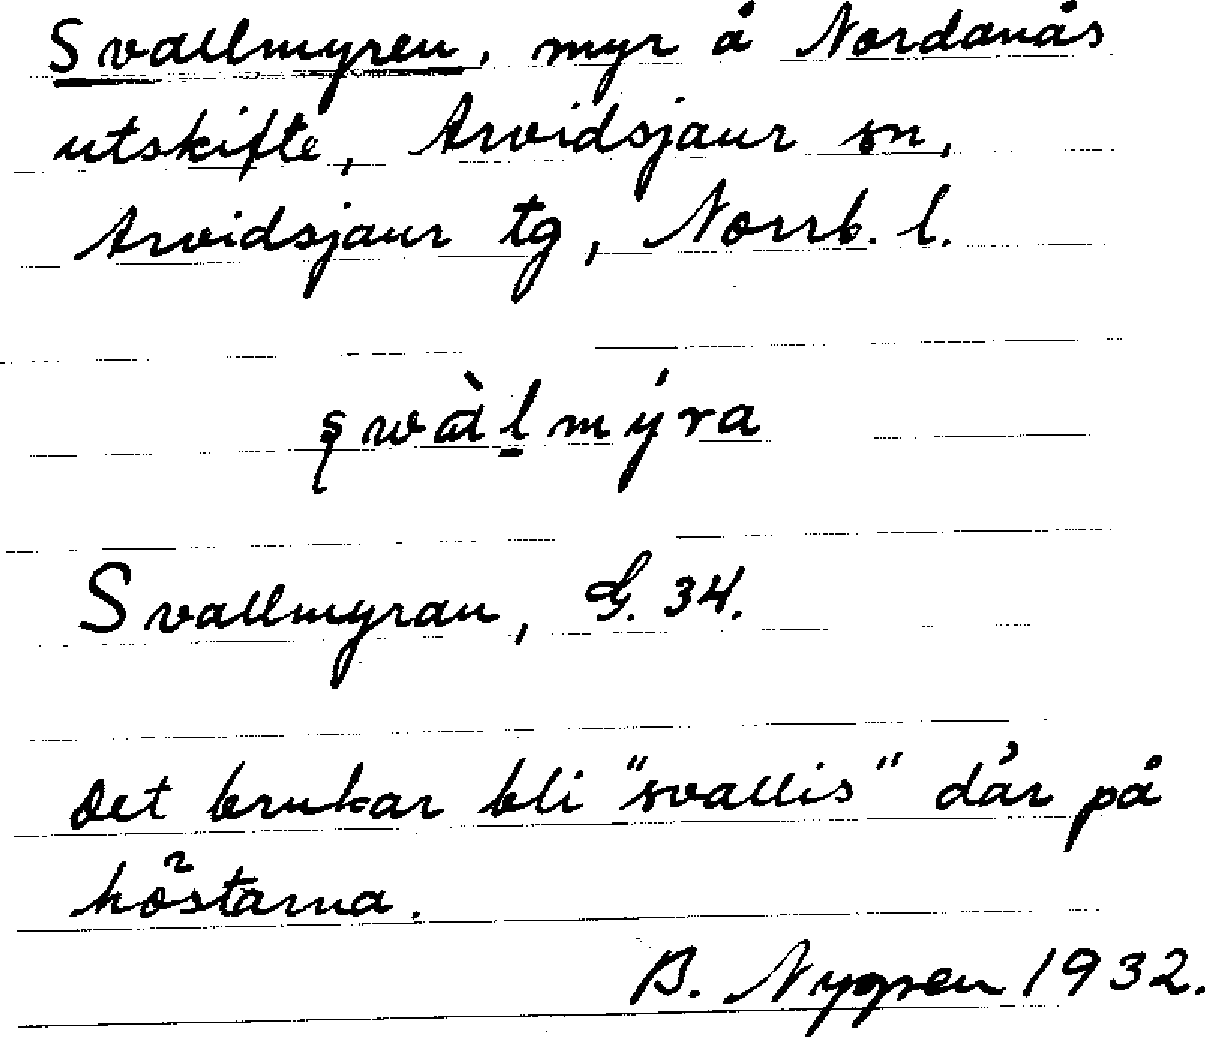 Svallmyren, myr å Nordanås
utskifte, Arvidsjaur sn,
Arvidsjaur tg, Norrb. l.
ʂwàl̠mýra
Svallmyran, G. 34.
Det brukar bli "svallis" där på
höstarna.
B. Nygren 1932.